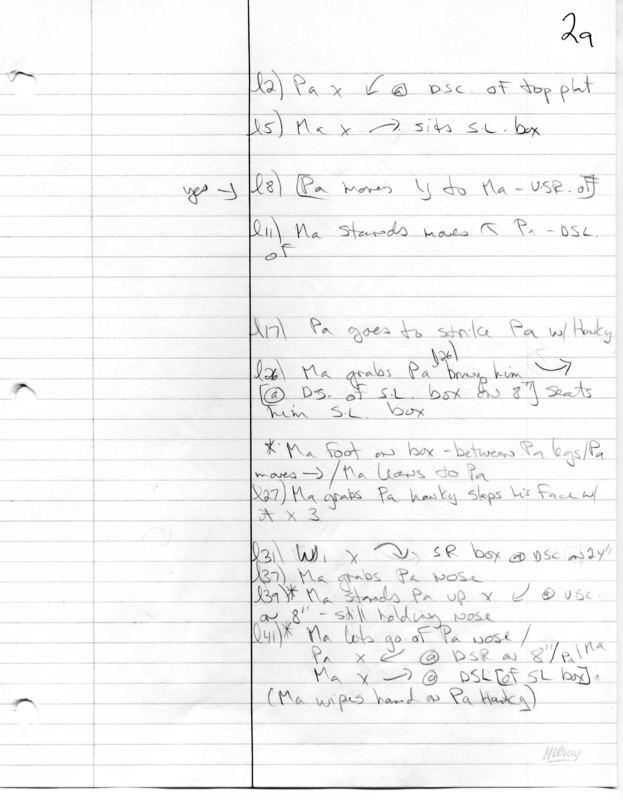 2a
l2) Pa x ↙ @ DSC. of top plat
l5) Ma x → sits S.L. box
yes → l8) [Pa moves to Ma - USR. of]
l11) Ma stands moves ↖ Pa - DSL.
of
l17) Pa goes to strike Pa w/ Hanky
l26) Ma grabs Pa l26) brings him →
[@ DS. of S.L. box on 8"] seats
him S.L. box
* Ma Foot on box - between Pa legs/Pa
moves → / Ma leans to Pa
l27) Ma grabs Pa hanky slaps his Face w/
x 3
l31) Wi x SR box @ DSC on 24"
l37) Ma grabs Pa nose
l39)* Ma stands Pa up x ↙ @ USC.
on 8" - still holding nose
l41)* Ma lets go of Pa nose /
Pa x ↙ @ DSR on 8"/Pa/Ma
Ma x → @ DSL [of SL box].
(Ma wipes hand on Pa Hanky)
Hilroy